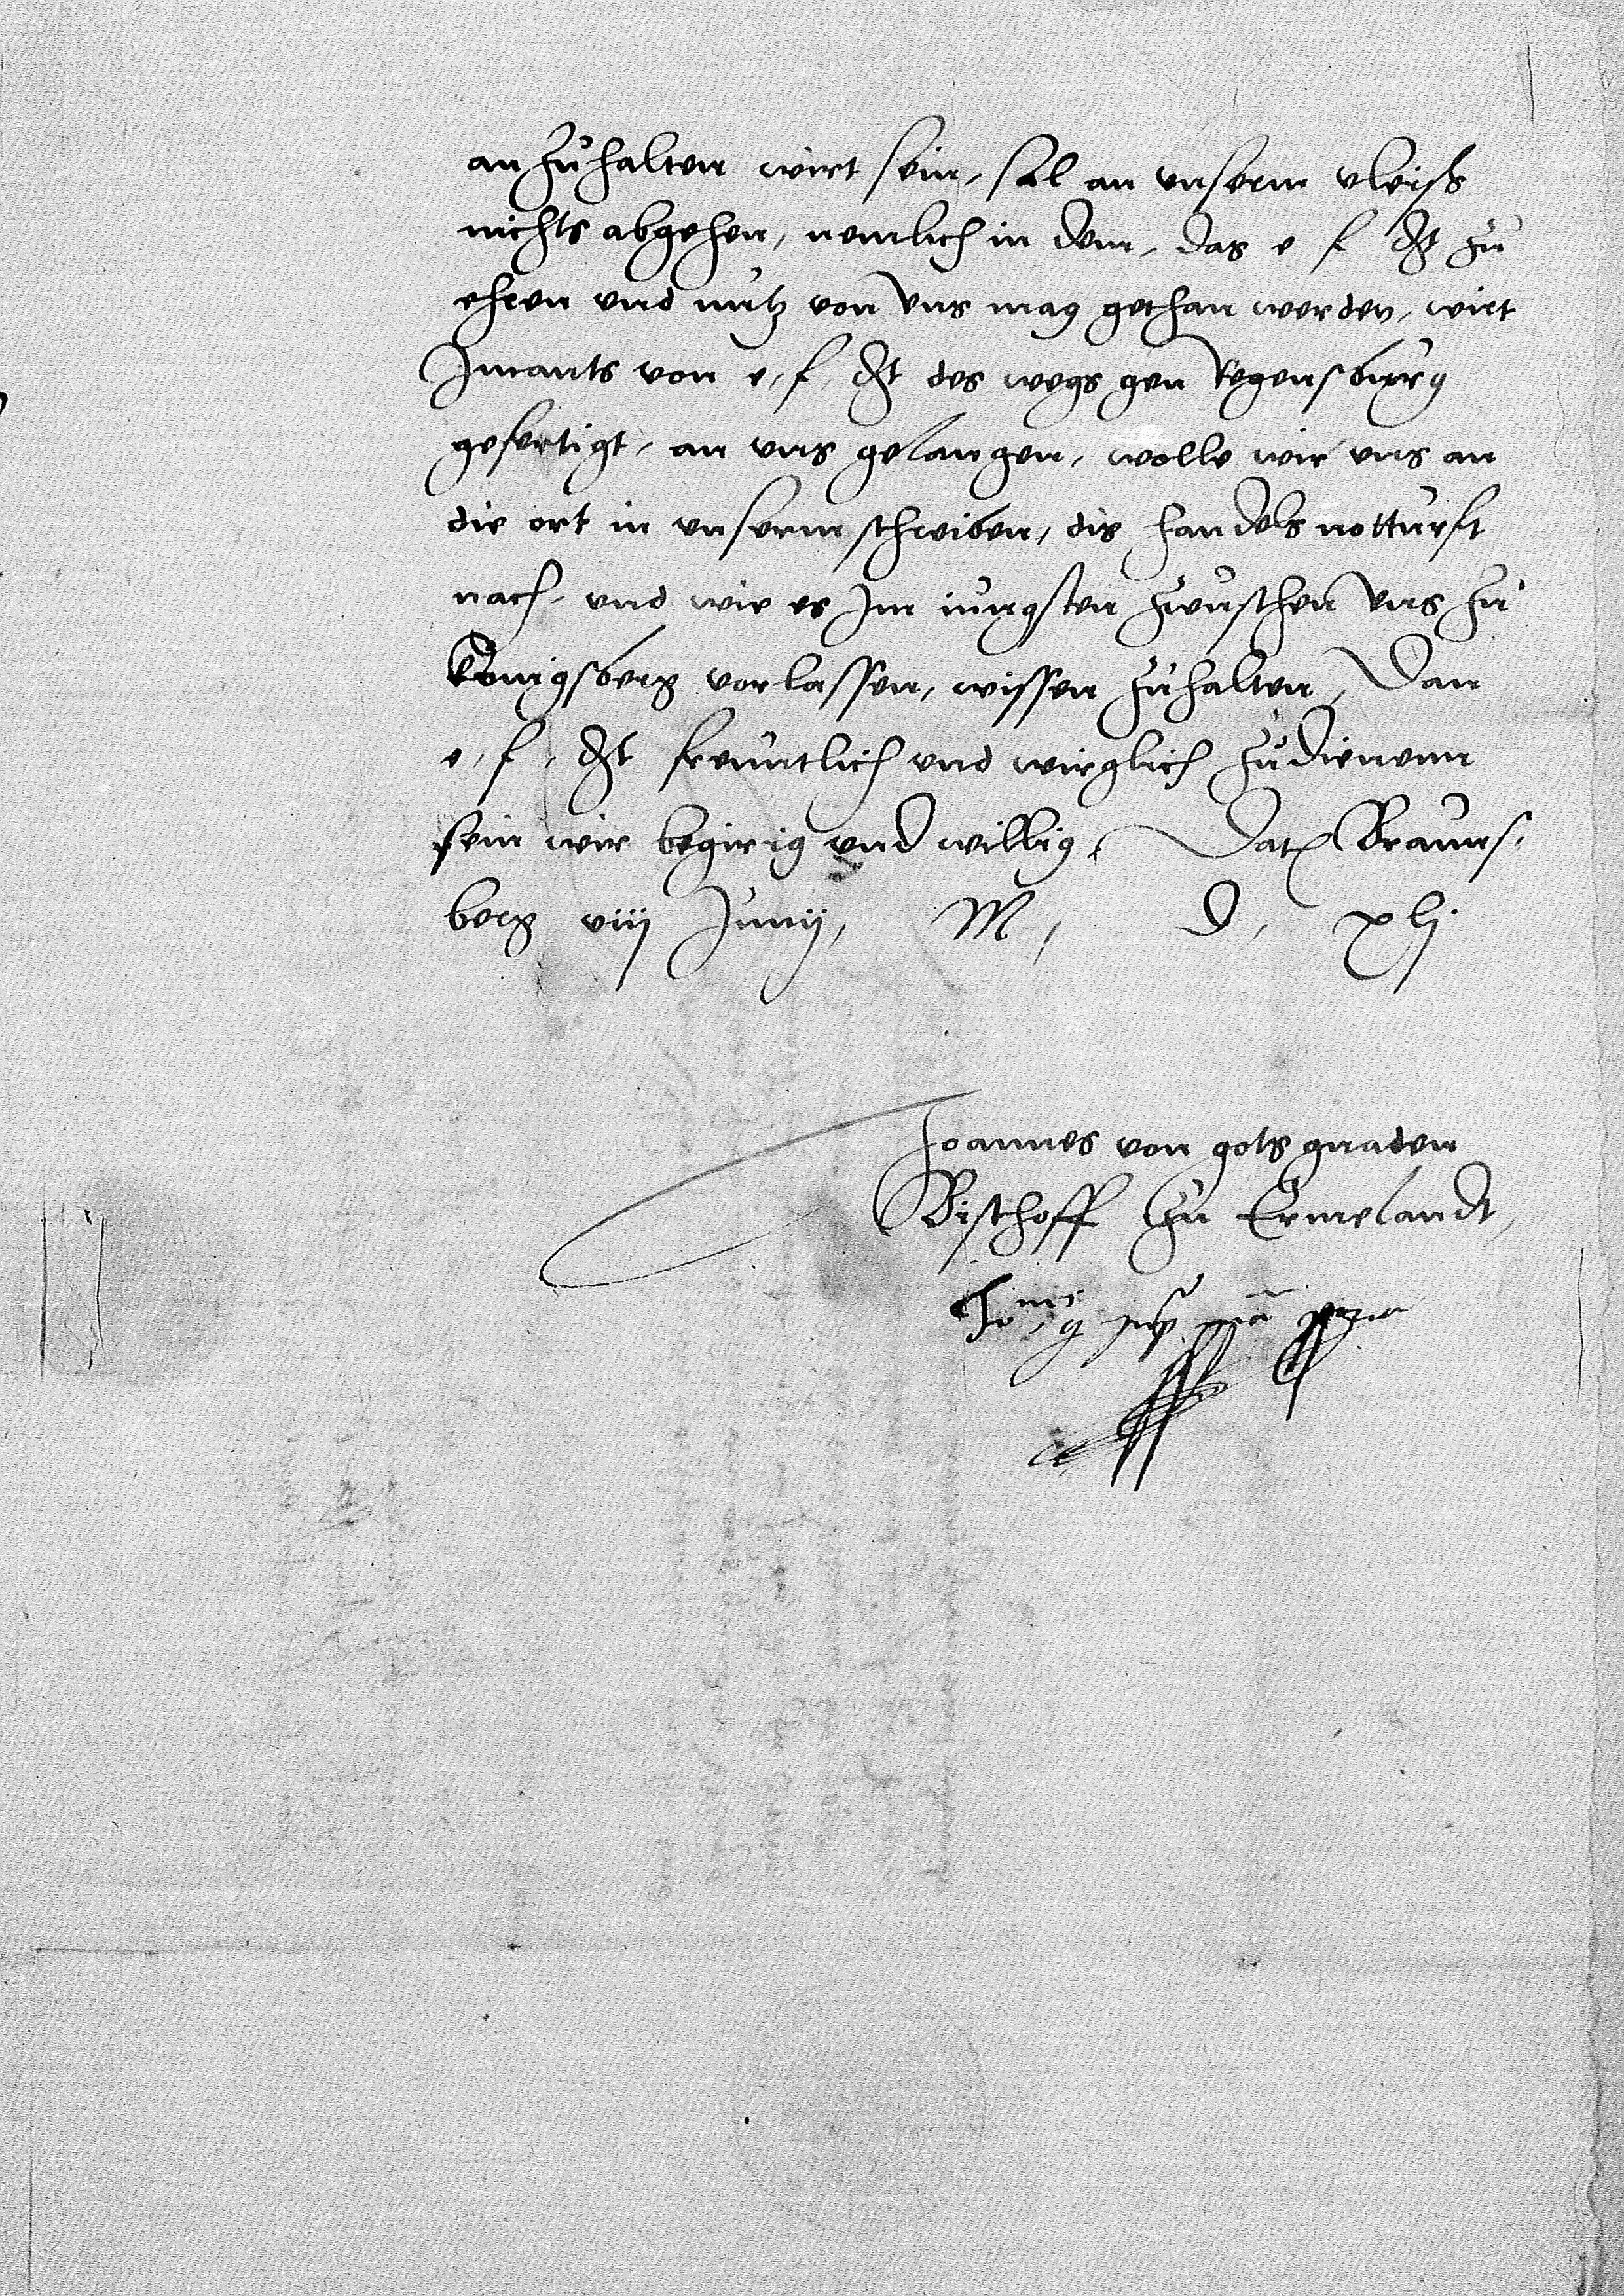 an zu halten wirt sein, sol an unserm vleiss
nichts abgehen, nemlich in dem, das e f dt zu
ehren und nutz von uns mag gethan werden, wirt
Jmants von e, f, dt des wegs gen Regensburg
gefertigt, an uns gelangen, wolle wir uns an
die ort in unserm schreiben, dis handels notturft
nach, und wie es Jm jungsten zwuschen uns zu
Konigsberg vorlassen, wissen zuhalten, Dan
e, f, dt freuntlich und wirglich zudienenn
sein wir begirig und willig, Dat Brauns,
berg viij Junij, M, D, xlj
Joannes von gots gnaden
Bischoff zu Ermelandt,